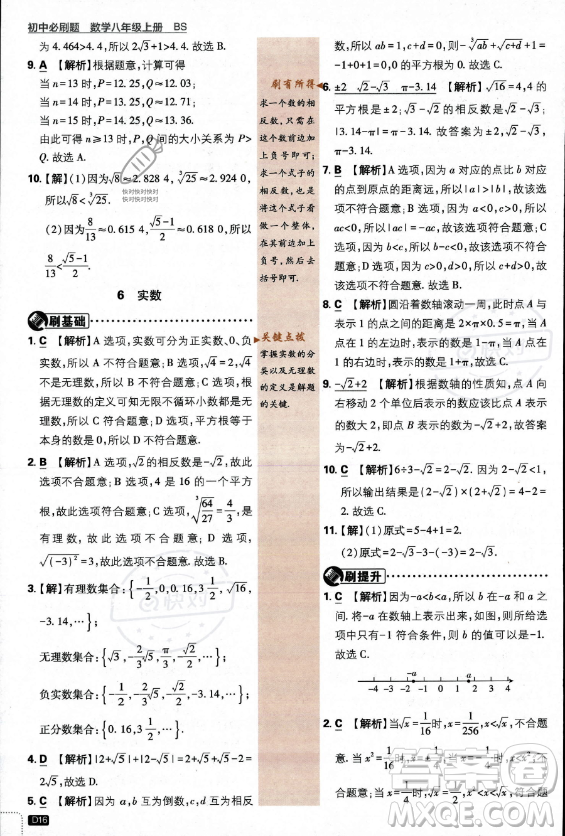 初中必刷题 数学八年级上册 BS
为 4.464>4.3,所以 2√3+1>5√3/2. 故选 B.
9. A 【解析】根据题意,经计算可得
当 n=13 时,P=12,Q=12.03;
当 n=14 时,P=12.71,
当 n=15 时,P=13.36.
由此可得 n≥13 时,P,Q 间的大小关系为 P>
Q. 故选 A.
10.【解】(1)因为√8≈2.828 4,³√25≈2.924 0,
所以√8<³√25.
(2)因为 8/13≈0.615 4,(√5-1)/2≈0.618 0,所以
8/13<(√5-1)/2.
6 实数
刷基础
1. C 【解析】A 选项,实数可分为正实数、0、负
实数,所以 A 不符合题意;B 选项,√4=2,√4
不是无理数,所以 B 不符合题意;C 选项,根
据无理数的定义可知无限不循环小数都是
无理数,所以 C 符合题意;D 选项,平方根等于
本身的数是 0,所以 D 不符合题意. 故选 C.
2. B 【解析】A 选项,√2的相反数是-√2,是无理
数,不符合题意;B 选项,4 是 16 的一个平方
根,是有理数,符合题意;C 选项,³√(64/27)=4/3,是
有理数,故不符合题意;D 选项,
√(-3)²=3,是有理数,故不符合题意. 故选 B.
3.【解】有理数集合:{-1/2,0,0.16,3 1/2,√16,
-3.14,…};
无理数集合:{√3,-2/3√5,√5/3,…};
负实数集合:{-1/2,-2/3√5,-3.14,…};
正分数集合:{0.16,3 1/2,…}.
4. D 【解析】|2+√5|+|2-√5|=2+√5+√5-2=
2√5. 故选 D.
5. C 【解析】因为 a,b 互为倒数,c,d 互为相反
D16
刷有所得
求一个数的相
反数,只需在
这个数前边加
负号即可;
求一个式子的
相反数,也是
将这个式子看
做一个整体,
在其前边加上
负号,然后去
括号即可.
关键点拨
掌握实数的分
类以及无理数
的定义是解题
的关键.
数,所以 ab=1,c+d=0,所以-³√ab+√(c+d)+1=
-1+0+1=0,0 的平方根为 0. 故选 C.
6. ±2 √2-√3 π-3.14 【解析】√16=4,4 的
平方根是±2;√3-√2 的相反数是√2-√3;
|3.14-π|=π-3.14. 故答案为±2,√2-√3,
π-3.14.
7. B 【解析】A 选项,因为 a 对应的点比 b 对应
的点到原点的距离远,所以|a|>|b|,故该选
项不符合题意;B 选项,因为 a<0,c>0,所以
ac<0,|ac|=-ac,故该选项符合题意;C
选项,因为 b<c,所以 b-c<0,故该选项不符合
题意;D 选项,因为 c>0,d>0,所以 c+d>0,
故该选项不符合题意. 故选 B.
8. C 【解析】圆沿着数轴滚动一周,所以 A 与
表示 1 的点之间的距离是 2×π×0.5=π. 当点
A 在 1 的左边时,表示的数是 1-π;当点 A 在
1 的右边时,表示的数是 1+π. 故选 C.
9. -√2+2 【解析】根据数轴的性质知,点 A 向
右移动 2 个单位后表示的数比点 A 表示
的数大 2,即点 B 表示的数为-√2+2. 故答案
为-√2+2.
10. C 【解析】6+3-√2=2-√2. 因为 2-√2<1,
所以输出结果是(2-√2)×(2+√2)=4-2=
2. 故选 C.
11.【解】(1)原式=5-4+1=2.
刷提升
1. C 【解析】因为-a<b<a,所以 b 在-a 和 a 之
间. 将-a 在数轴上表示出来,如图,所给的选
项中只有-1 符合条件,则 b 的值可以是-1.
故选 C.
-a a
-4 -3 -2 -1 0 1 2 3 4
2. C 【解析】当√x=1/16时,x=1/256,x<√x,不合题